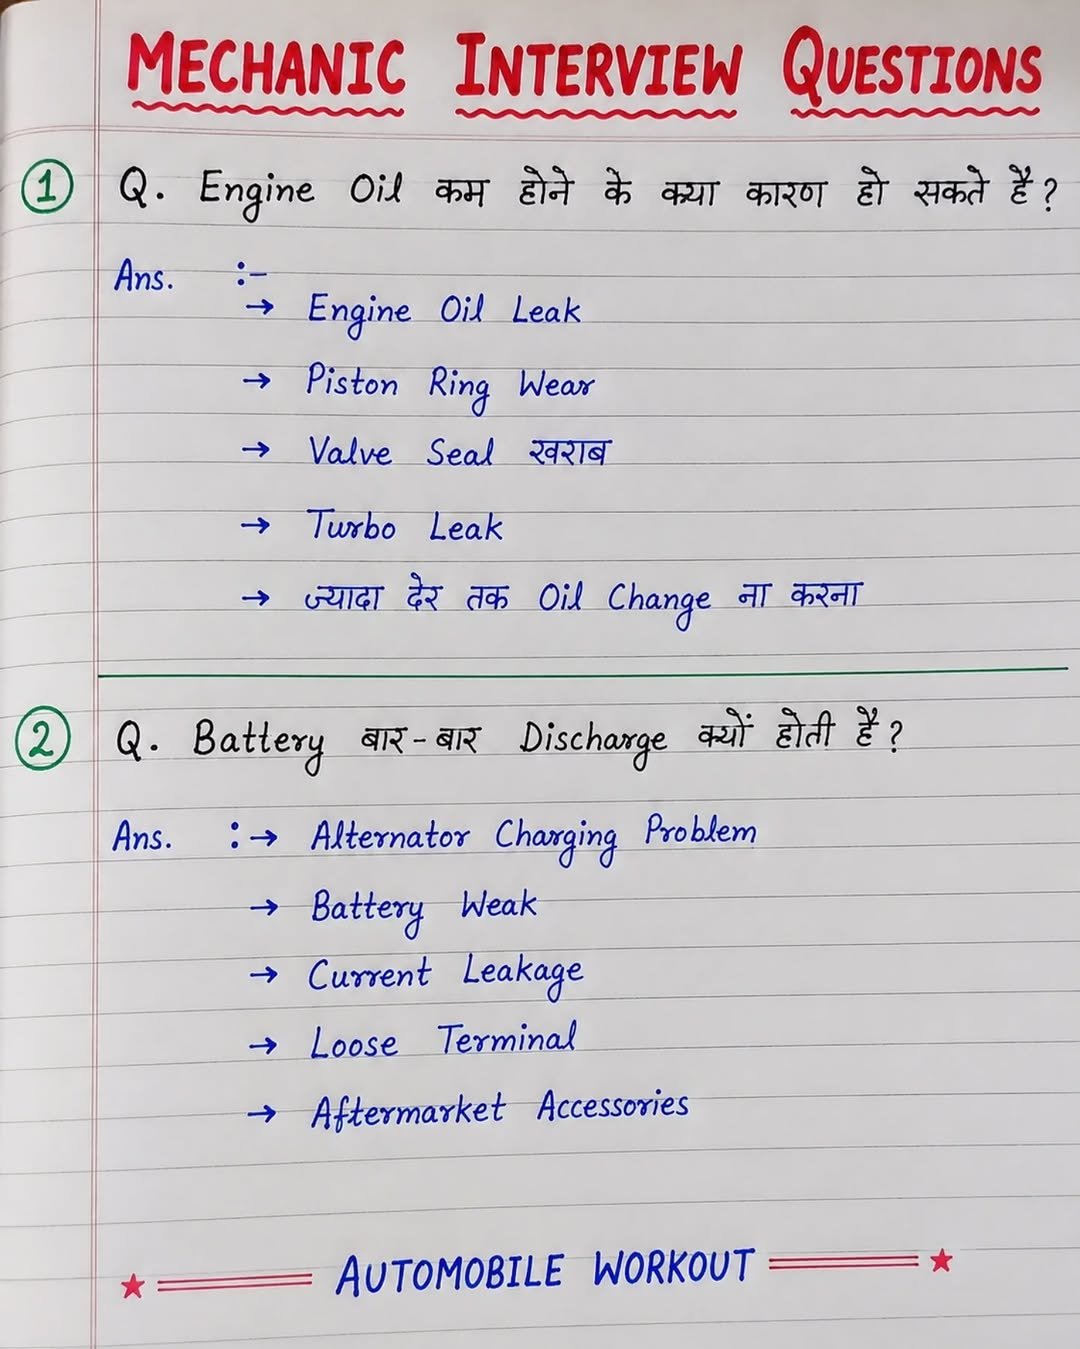 MECHANIC INTERVIEW QUESTIONS
1 Q. Engine Oil कम होने के क्या कारण हो सकते हैं?
Ans. :-
→ Engine Oil Leak
→ Piston Ring Wear
→ Valve Seal खराब
→ Turbo Leak
→ ज्यादा देर तक Oil Change ना करना
2 Q. Battery बार-बार Discharge क्यों होती है?
Ans. :→ Alternator Charging Problem
→ Battery Weak
→ Current Leakage
→ Loose Terminal
→ Aftermarket Accessories
★ AUTOMOBILE WORKOUT ★